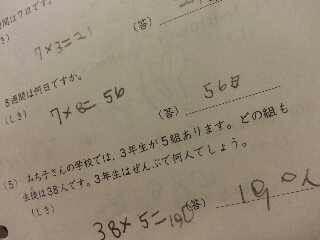 週間は7日です。
(しき)
7×3=21
(答)
8週間は何日ですか。
(しき)
7×8=56
(答) 56日
(5) みち子さんの学校では、3年生が5組あります。どの組も
生徒は38人です。3年生はぜんぶで何人でしょう。
(しき)
38×5=190
(答) 190人